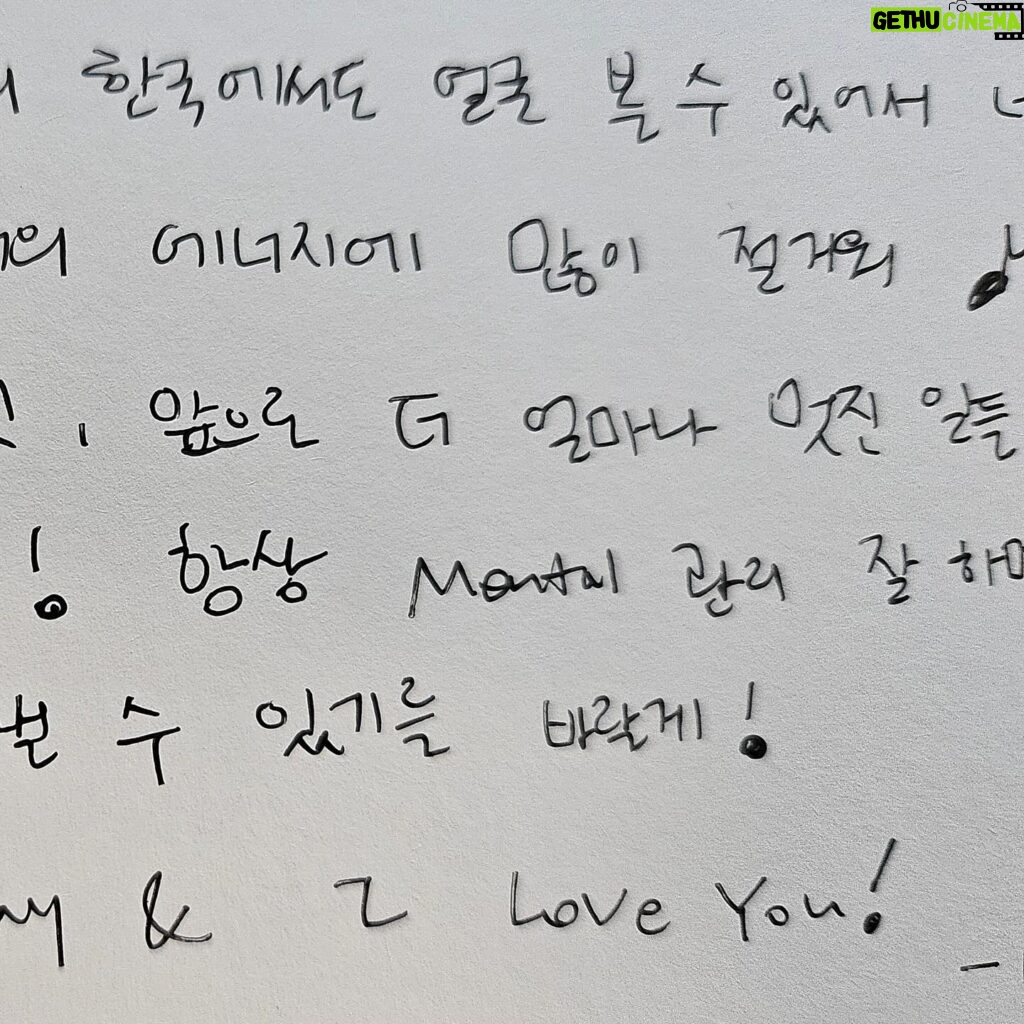 GETHUCINEMA
한국에서도 얼굴 볼 수 있어서 너
의 에너지에 많이 즐거워 ♪
, 앞으로 더 얼마나 멋진 일들
! 항상 Mental 관리 잘 하며
볼 수 있기를 바랄게!
& I Love You!